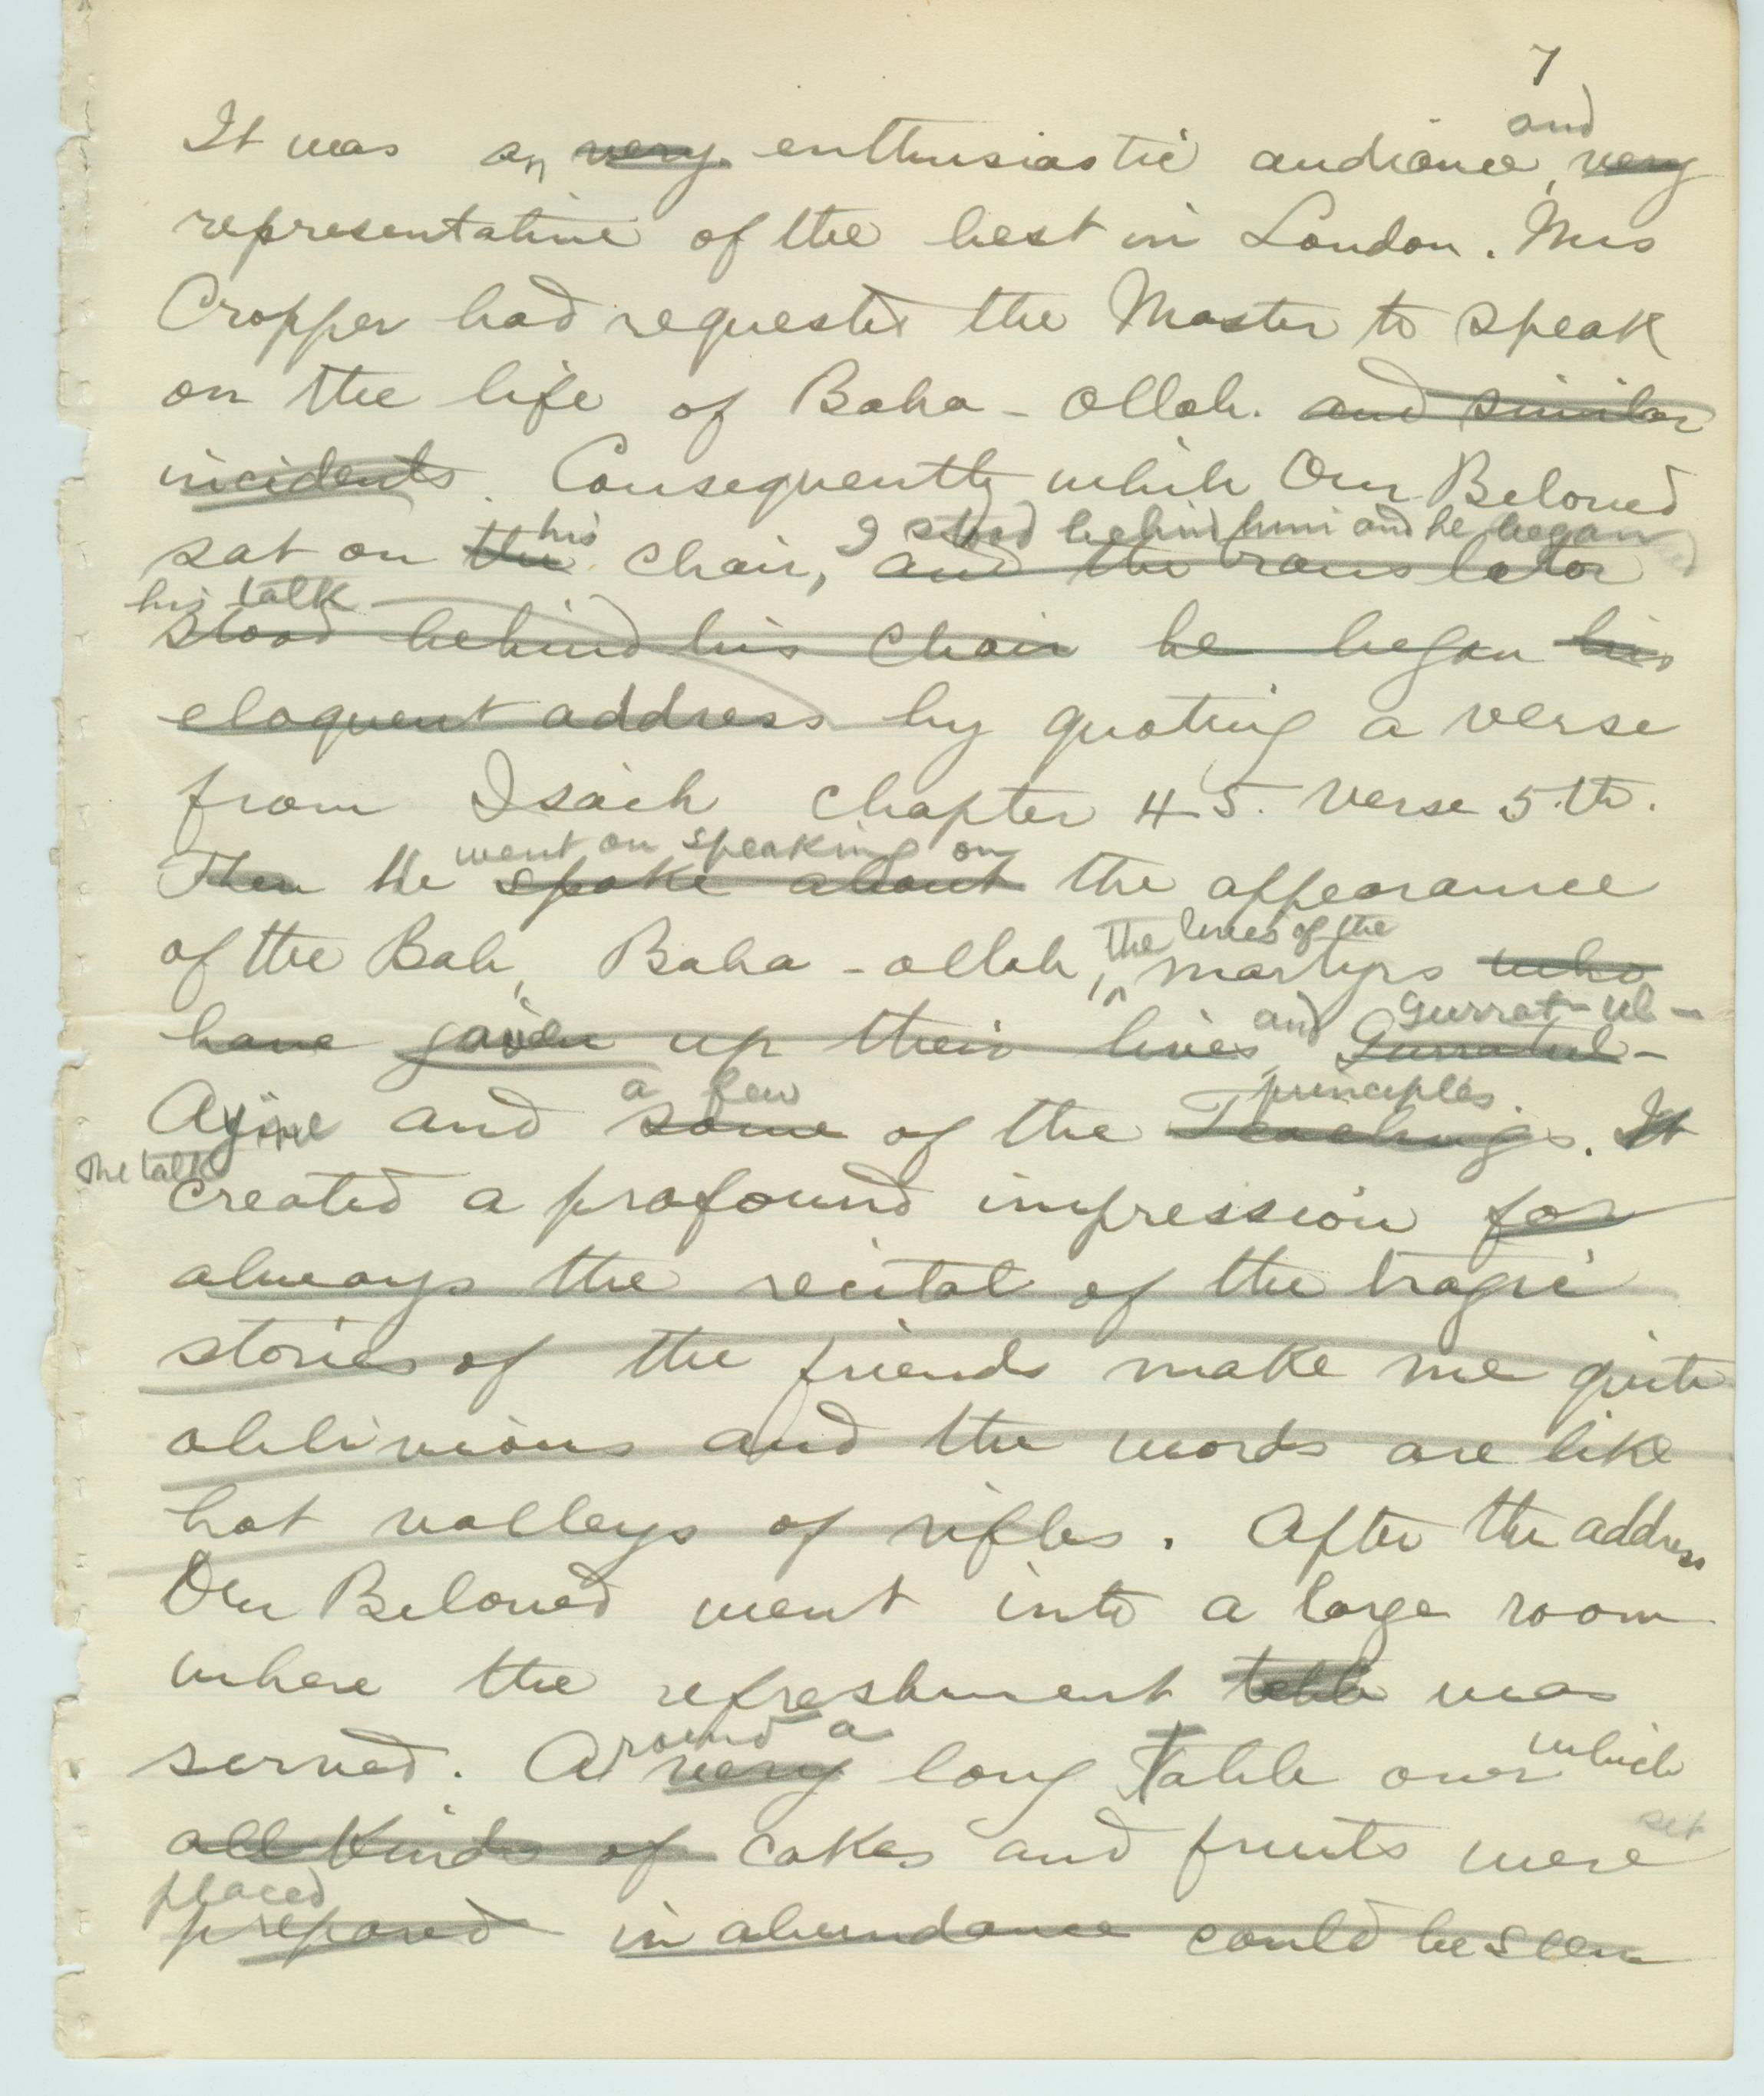 7
and
It was an very enthusiastic audience, very
representative of the best in London. Mrs
Cropper had requested the Master to speak
on the life of Baha-ollah. and similar
incidents. Consequently while Our Beloved
his I stood behind him and he began
sat on the chair, and the translator
his talk
stood behind his chair he began his
eloquent address by quoting a verse
from Isaih chapter 45. verse 5.th.
went on speaking on
Then He spoke about the appearance
the lives of the
of the Bab, Baha-ollah, martyrs who
and Gurrat-ul-
have given up their lives, Gurratul-
a few principles
Ayine and some of the Teachings. It
The talk
created a profound impression for
always the recital of the tragic
stories of the friends make me quite
oblivious and the words are like
hot volleys of rifles. After the address
Our Beloved went into a large room
where the refreshment table was
round a which
served. A very long Table over
set
all kinds of cakes and fruits were
placed
prepared in abundance could be seen